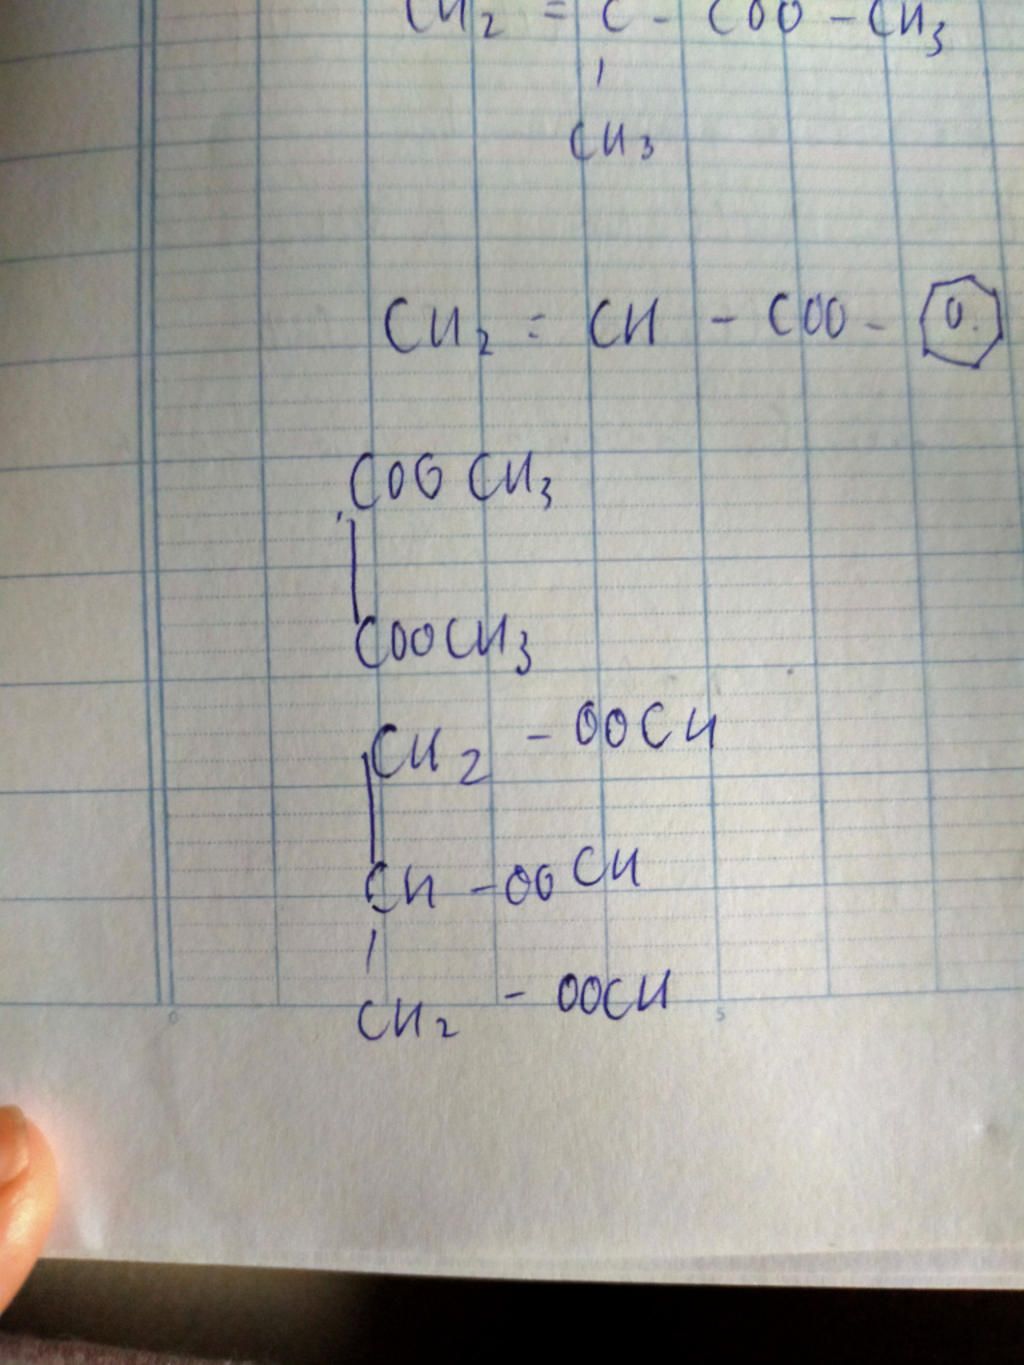 CH2 = C - COO - CH3
CH3
CH2 = CH - COO -
COO CH3
COOCH3
CH2 - OOCH
CH - OOCH
CH2 - OOCH
0 5